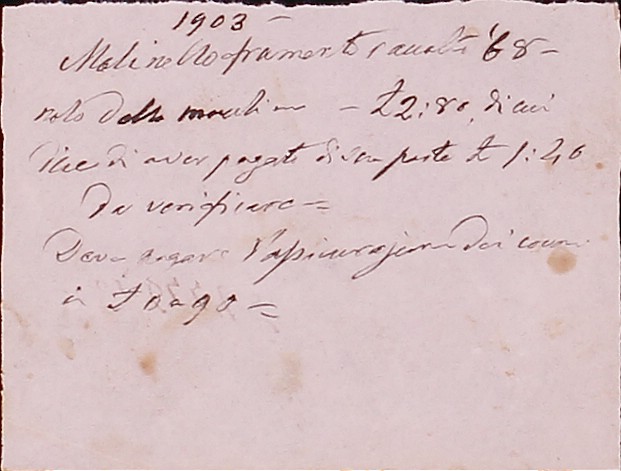 1903 –
Molinello frumento, sacchi 68 –
nolo della macchina – £ 2:80, di cui
dice di aver pagato di sua parte £ 1:40
Da verificare =
Deve pagare l'assicurazione dei covoni
in £ 0 = 90 =